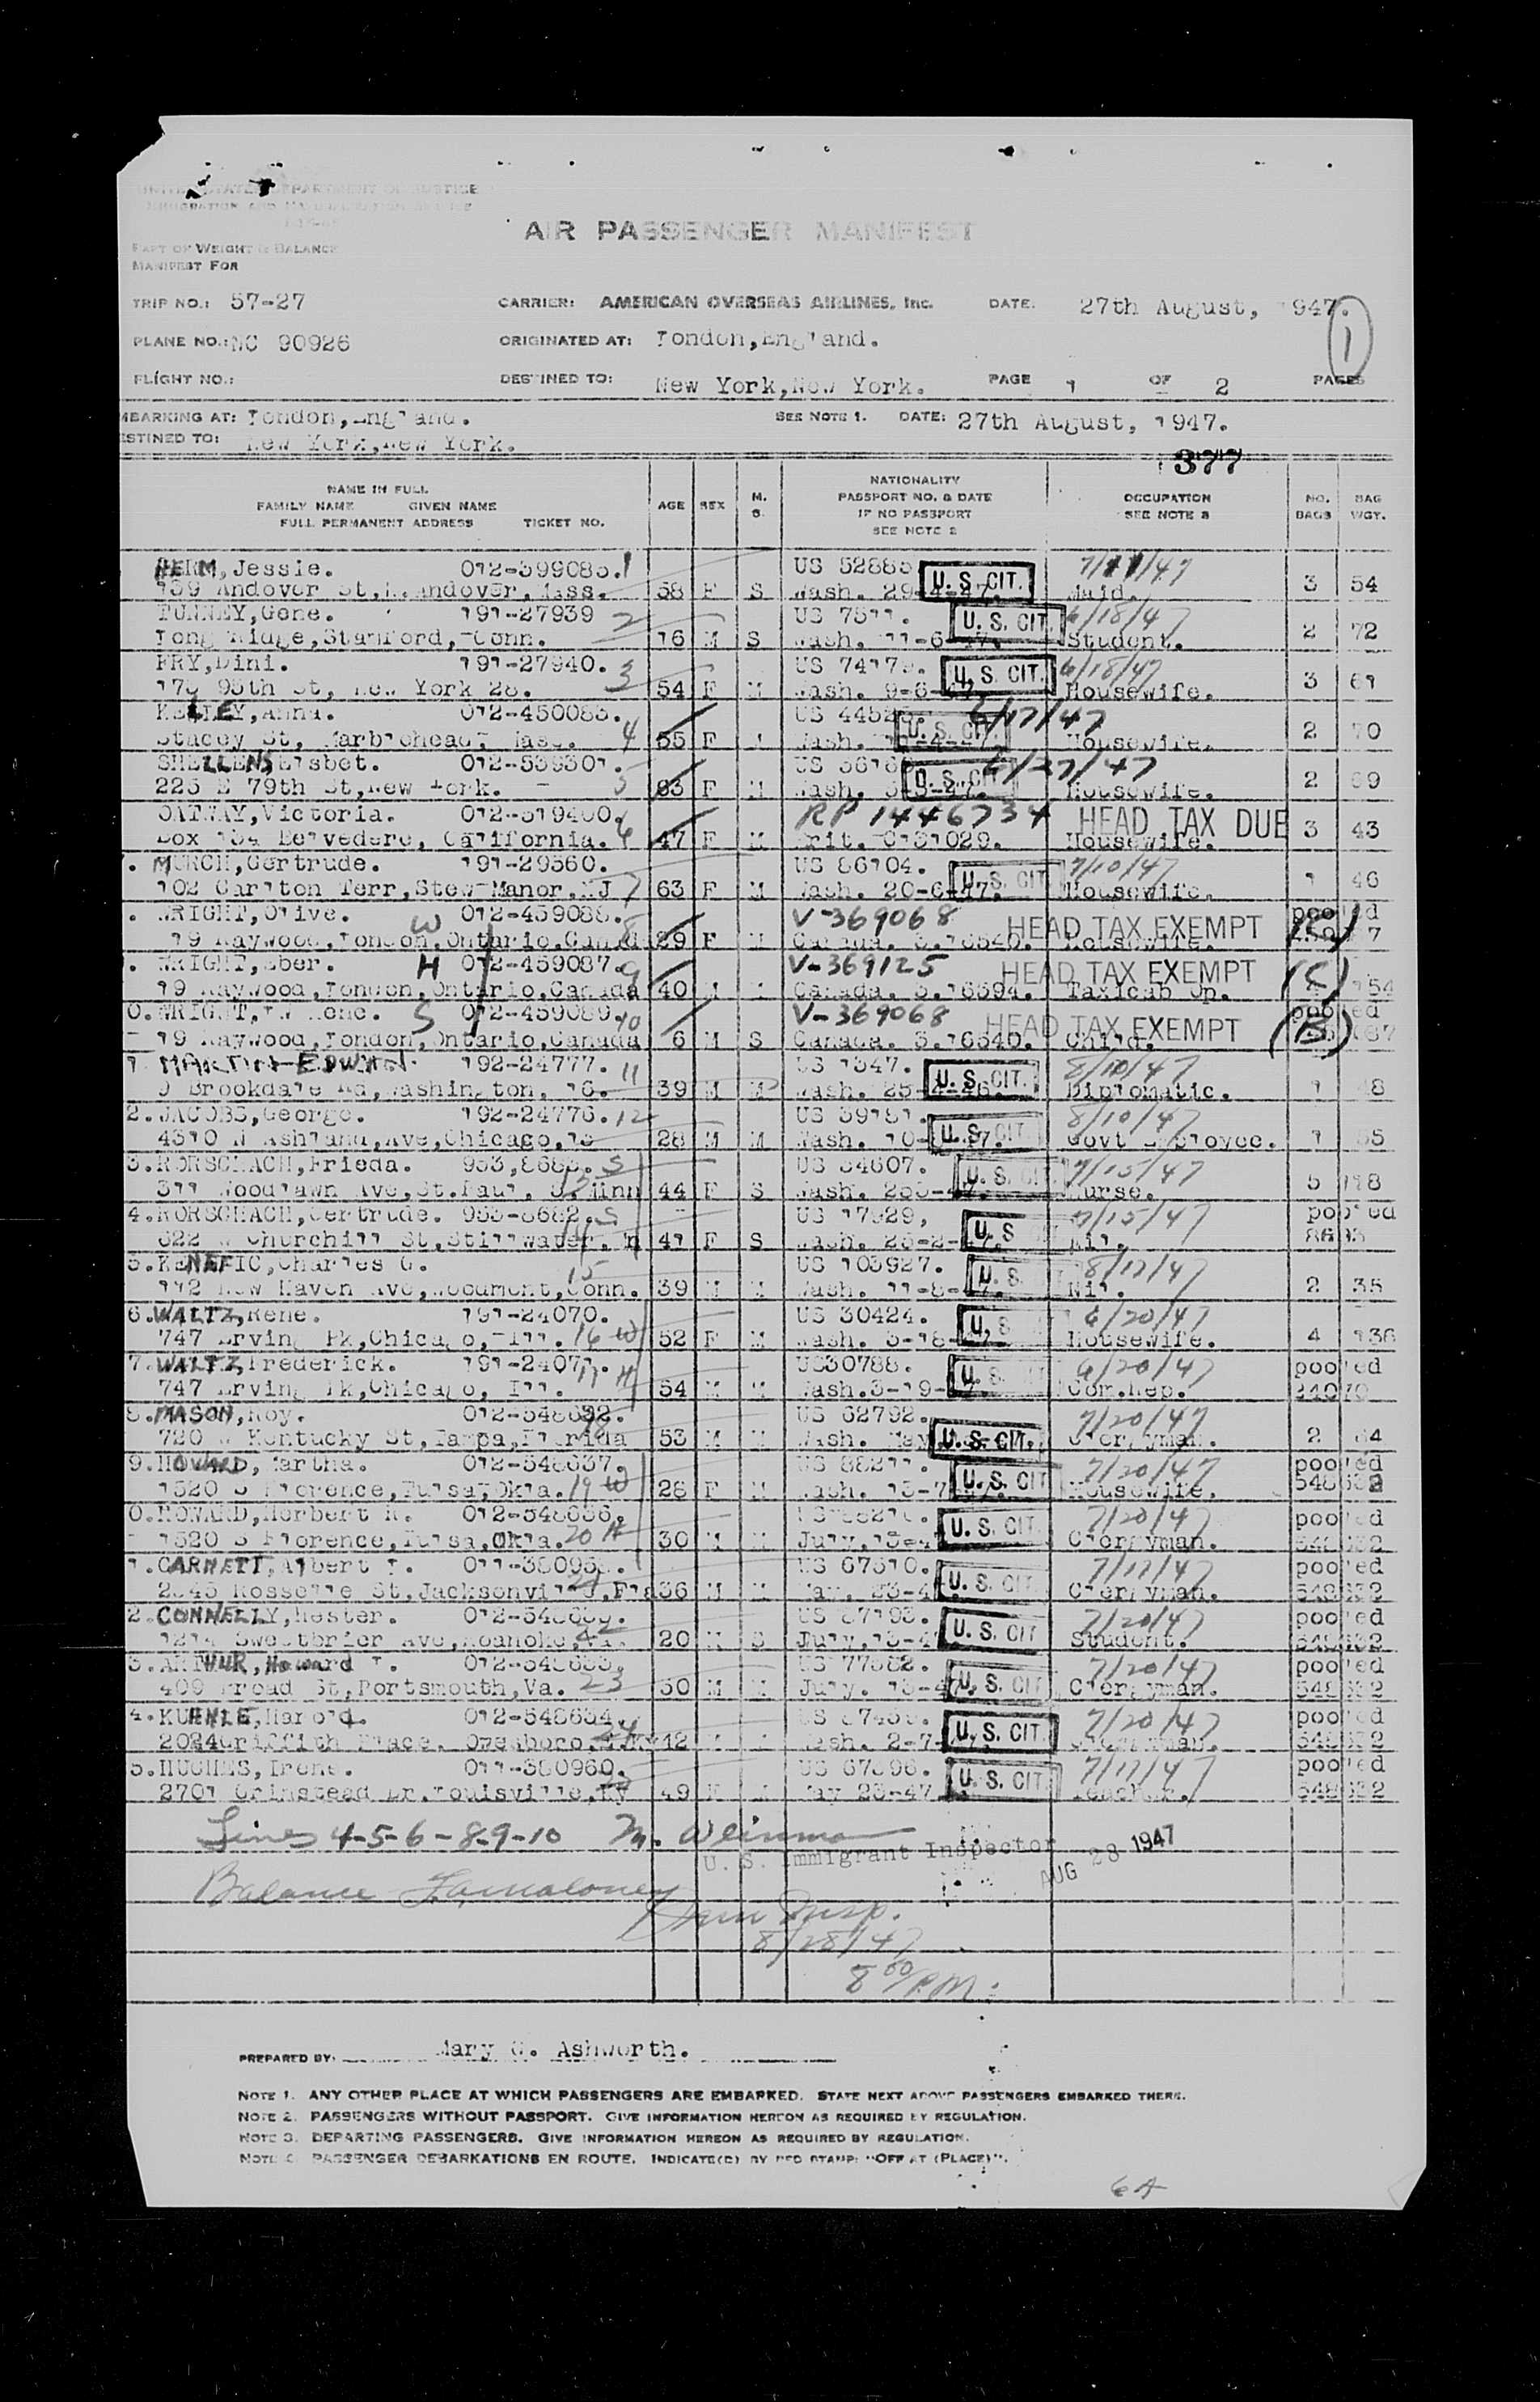 UNITED STATES DEPARTMENT OF JUSTICE
IMMIGRATION AND NATURALIZATION SERVICE
AIR PASSENGER MANIFEST
PART OF WEIGHT & BALANCE
MANIFEST FOR
TRIP NO.: 57-27 CARRIER: AMERICAN OVERSEAS AIRLINES, Inc. DATE: 27th August, 1947.
1
PLANE NO.: NC 90926 ORIGINATED AT: London,England.
FLIGHT NO.: DESTINED TO: New York,New York. PAGE 1 OF 2 PAGES
EMBARKING AT: London,England. SEE NOTE 1. DATE: 27th August, 1947.
DESTINED TO: New York,New York.
377
NAME IN FULL
FAMILY NAME GIVEN NAME
FULL PERMANENT ADDRESS TICKET NO.
AGE SEX M. S.
NATIONALITY
PASSPORT NO. & DATE
IF NO PASSPORT
SEE NOTE 2
OCCUPATION
SEE NOTE 3
NO. BAGS BAG WGT.
HERM,Jessie. 012-399083. 1 US 52885 U. S. CIT. 7/11/47
139 Andover St,N.Andover,Mass. 58 F S Wash. 29-4-47. Maid. 3 54
TUNNEY,Gene. 191-27939 2 US 7511. U. S. CIT. 6/18/47
Long Ridge,Stamford,Conn. 16 M S Wash. 11-6-47. Student. 2 72
FRY,Dini. 191-27940. 3 US U. S. CIT. 6/18/47
95th St, New York 28. 54 F M Wash. 9-6-47. Housewife. 3 61
KELLEY,Anna. 012-450083. 4 US U. S. CIT. 6/17/47
Stacey St, Marblehead, Mass. 55 F Wash. Housewife. 2 70
SHELLENS,Elsbet. 012-539301. 5 US U. S. CIT. 6/27/47
225 E 79th St,New York. 63 F M Wash. Housewife. 2 69
OATWAY,Victoria. 6 RP 1446734 HEAD TAX DUE
Box 134 Belvedere, California. 47 F M Brit. C131029. Housewife. 3 43
MURCH,Gertrude. 191-29560. 7 US 86104. U. S. CIT. 7/10/47
102 Carlton Terr,Stew Manor,NJ 63 F M Wash. 20-6-47. Housewife. 1 46
WRIGHT,Olive. W 012-459088. 8 V-369068 HEAD TAX EXEMPT pooled
19 Raywood,London,Ontario,Canada 29 F M Canada. Housewife.
WRIGHT,Eber. H 012-459087. 9 V-369125 HEAD TAX EXEMPT
19 Raywood,London,Ontario,Canada 40 M M Canada. Taxicab Op. 154
0. WRIGHT, S 012-459089. 10 V-369068 HEAD TAX EXEMPT pooled
19 Raywood,London,Ontario,Canada 6 M S Canada. Child.
1. MARTIN EDWIN. 192-24777. 11 US 1347. U. S. CIT. 8/10/47
Brookdale Rd,Washington, 16. 39 M M Wash. Diplomatic. 1
2. JACOBS,George. 192-24776. 12 US U. S. CIT. 8/10/47
4510 N Ashland,Ave,Chicago, 28 M M Wash. Govt Employee. 1
3. RORSCHACH,Frieda. S 13 US 34607. U. S. CIT. 7/15/47
311 Woodlawn Ave,St.Paul, 5.Minn 44 F S Wash. Nurse. 5 118
4. RORSCHACH,Gertrude. 953-8682. S 14 US 17929, U. S. 7/15/47 pooled
622 W Churchill St,Stillwater, 41 F S Wash. Nil.
5. KENEFIC,Charles G. 15 US 103927. U. S. 8/12/47
112 New Haven Ave,Woodmont,Conn. 39 M M Wash. 11-8-47. Nil. 2 35
6. WALTZ,Rene. 191-24070. US 30424. U. S. 6/20/47
747 Irving Pk,Chicago, Ill. 16 W 52 F M Wash. Housewife. 4 136
7. WALTZ,Frederick. 191-24071. 17 H US30788. U. S. 6/20/47 pooled
747 Irving Pk,Chicago, Ill. 54 M M Wash.3-19- Com.Rep. 24070
8. MASON,Roy. 012-548632. 18 US 62792. 7/20/47
720 W Kentucky St,Tampa,Florida 53 M M Wash. May U. S. CIT. Clergyman. 2 64
9. HOWARD,Martha. 012-548637. US 88211. 7/20/47 pooled
1520 S Florence,Tulsa,Okla. 19 W 28 F M Wash. U. S. CIT Housewife. 548632
0. HOWARD,Herbert R. 012-548636. US 88210. U. S. CIT. 7/20/47 pooled
1520 S Florence,Tulsa,Okla. 20 H 30 M M July,15-4 Clergyman. 548632
1. GARNETT,Albert L. US 67610. U. S. CIT. 7/17/47 pooled
2845 Rosselle St,Jacksonville,Fla 36 M M May, 23-4 Clergyman. 548632
2. CONNELLY,Hester. US 87193. U. S. CIT 7/20/47 pooled
1214 Sweetbrier Ave,Roanoke,Va. 22 20 S July,15-4 Student. 548632
3. ARTHUR,Howard L. 012-548633. US 77582. 7/20/47 pooled
409 Broad St,Portsmouth,Va. 23 30 M M July. 15-4 U. S. CIT Clergyman. 548632
4. KUHNLE,Harold. 012-548634. US U. S. CIT. 7/20/47 pooled
2024 Griffith Place, Owensboro, Ky 24 42 Wash. 2-7- Clergyman. 548632
5. HUGHES,Irene. 011-380960. US 67696. U. S. CIT. 7/17/47 pooled
2701 Grinstead Dr.Louisville,Ky 49 F May 23-47 Teacher. 548632
Lines 4-5-6-8-9-10 M. Weinman
U. S. Immigrant Inspector
AUG 28 1947
Balance
Imm Insp.
8/28/47
8 00/P.M.
PREPARED BY: Mary G. Ashworth.
NOTE 1. ANY OTHER PLACE AT WHICH PASSENGERS ARE EMBARKED. STATE NEXT ABOVE PASSENGERS EMBARKED THERE.
NOTE 2. PASSENGERS WITHOUT PASSPORT. GIVE INFORMATION HEREON AS REQUIRED BY REGULATION.
NOTE 3. DEPARTING PASSENGERS. GIVE INFORMATION HEREON AS REQUIRED BY REGULATION.
NOTE 4. PASSENGER DEBARKATIONS EN ROUTE. INDICATE(D) BY RED STAMP: "OFF AT (PLACE)".
6A